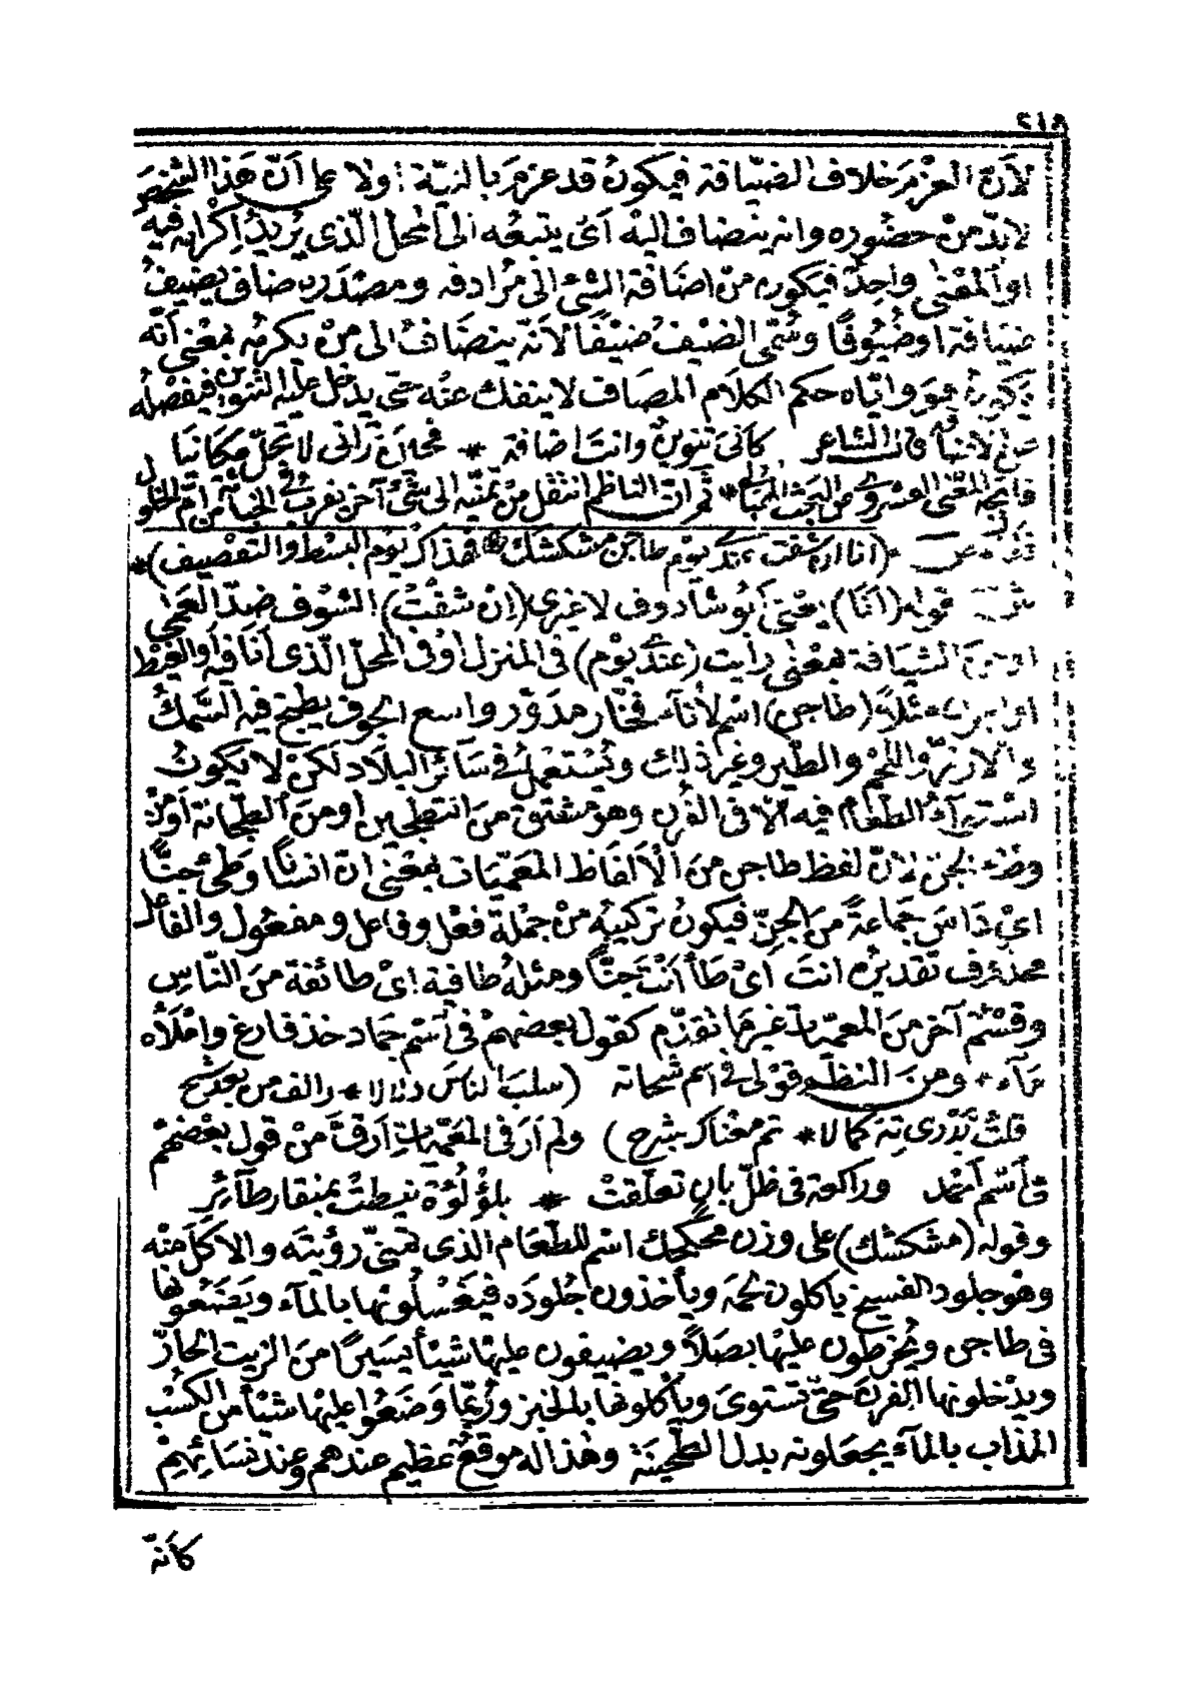 ٢١٨
لأنّ العزم خلاف الضيافة فيكون قد عزم بالنيّة أولا على أنّ هذا الشخص
لابدّ من حضوره وانه ينضاف اليه أى يتبعه الى المحل الّذى يريد اكرامه فيه
او المعنى واحد فيكون من اضافة الشئ الى مرادفه ومصدره ضاف يضيف
ضيافة او ضيوفًا وسُمّى الضيف ضيفًا لأنّه ينضاف الى من يكرمه بمعنى أنّه
يكون هو وايّاه حكم الكلام المضاف لا ينفك عنه حتى يدخل عليه التنوين فيفصله
قال الشاعر كأنى تنوين وانت اضافة * فحين ترانى لا تحلّ مكانيا
المعنى من البحث * ثم ان الناظم انتقل من تمنّيه الى شئ آخر يقرب فى
فقال ص (انا ان شفت عندى يوم طاجن مشكشك * فهذاك يوم البسط والتقصيف) *
ش قوله (أنا) يعنى أبو شادوف لا غيرى (إن شفت) الشوف ضدّ العمى
الشيافة بمعنى رأيت (عندى يوم) فى المنزل أو فى المحلّ الّذى أنا فيه أو الغيط
مثلاً (طاجن) اسم لأناء فخّار مدوّر واسع الجوف يطبخ فيه السّمك
والأرز واللحم والطير وغير ذلك ويُستعمل فى سائر البلاد لكن لا يكون
استواء الطعام فيه الا فى الفرن وهو مشتق من التطجين أو من الطجانة أو من
وطئ الجن لأنّ لفظ طاجن من الألفاظ المعمّيات بمعنى ان انسانًا وطئ جنًّا
اى داس جماعةً من الجنّ فيكون تركيبه من جملة فعل وفاعل ومفعول والفاعل
محذوف تقديره انت أى طأ أنت جنًّا ومثله طافية اى طائفة من النّاس
وقسم آخر من المعمّيات غير ما تقدّم كقول بعضهم فى اسم حماد خذ فارغ واملأه
ماء * ومن النظم قولى فى اسم شحاته (سلب الناس دلالا * والف من بعد شح
قلت تدرى ته كمالا * تم معناك بشرح) ولم أر فى المعمّيات أرقّ من قول بعضهم
فى اسم أحمد وراكعة فى ظلّ بان تعلّقت * بلؤلؤة نيطت بمنقار طائر
وقوله (مشكشك) على وزن محكحك اسم للطعام الذى تمنّى رؤيته والاكل منه
وهو جلود الفسيخ يأكلون لحمه ويأخذون جلوده فيغسلونها بالماء ويضعونها
فى طاجن ويخرطون عليها بصلاً ويضيفون عليها شيئًا يسيرًا من الزيت الحارّ
ويدخلونها الفرن حتّى تستوى ويأكلونها بالخبز وربّما وضعوا عليها شيئًا من الكسب
المذاب بالماء يجعلونه بدل الطحينة وهذا له موقع عظيم عندهم وعند نسائهم
كأنّه